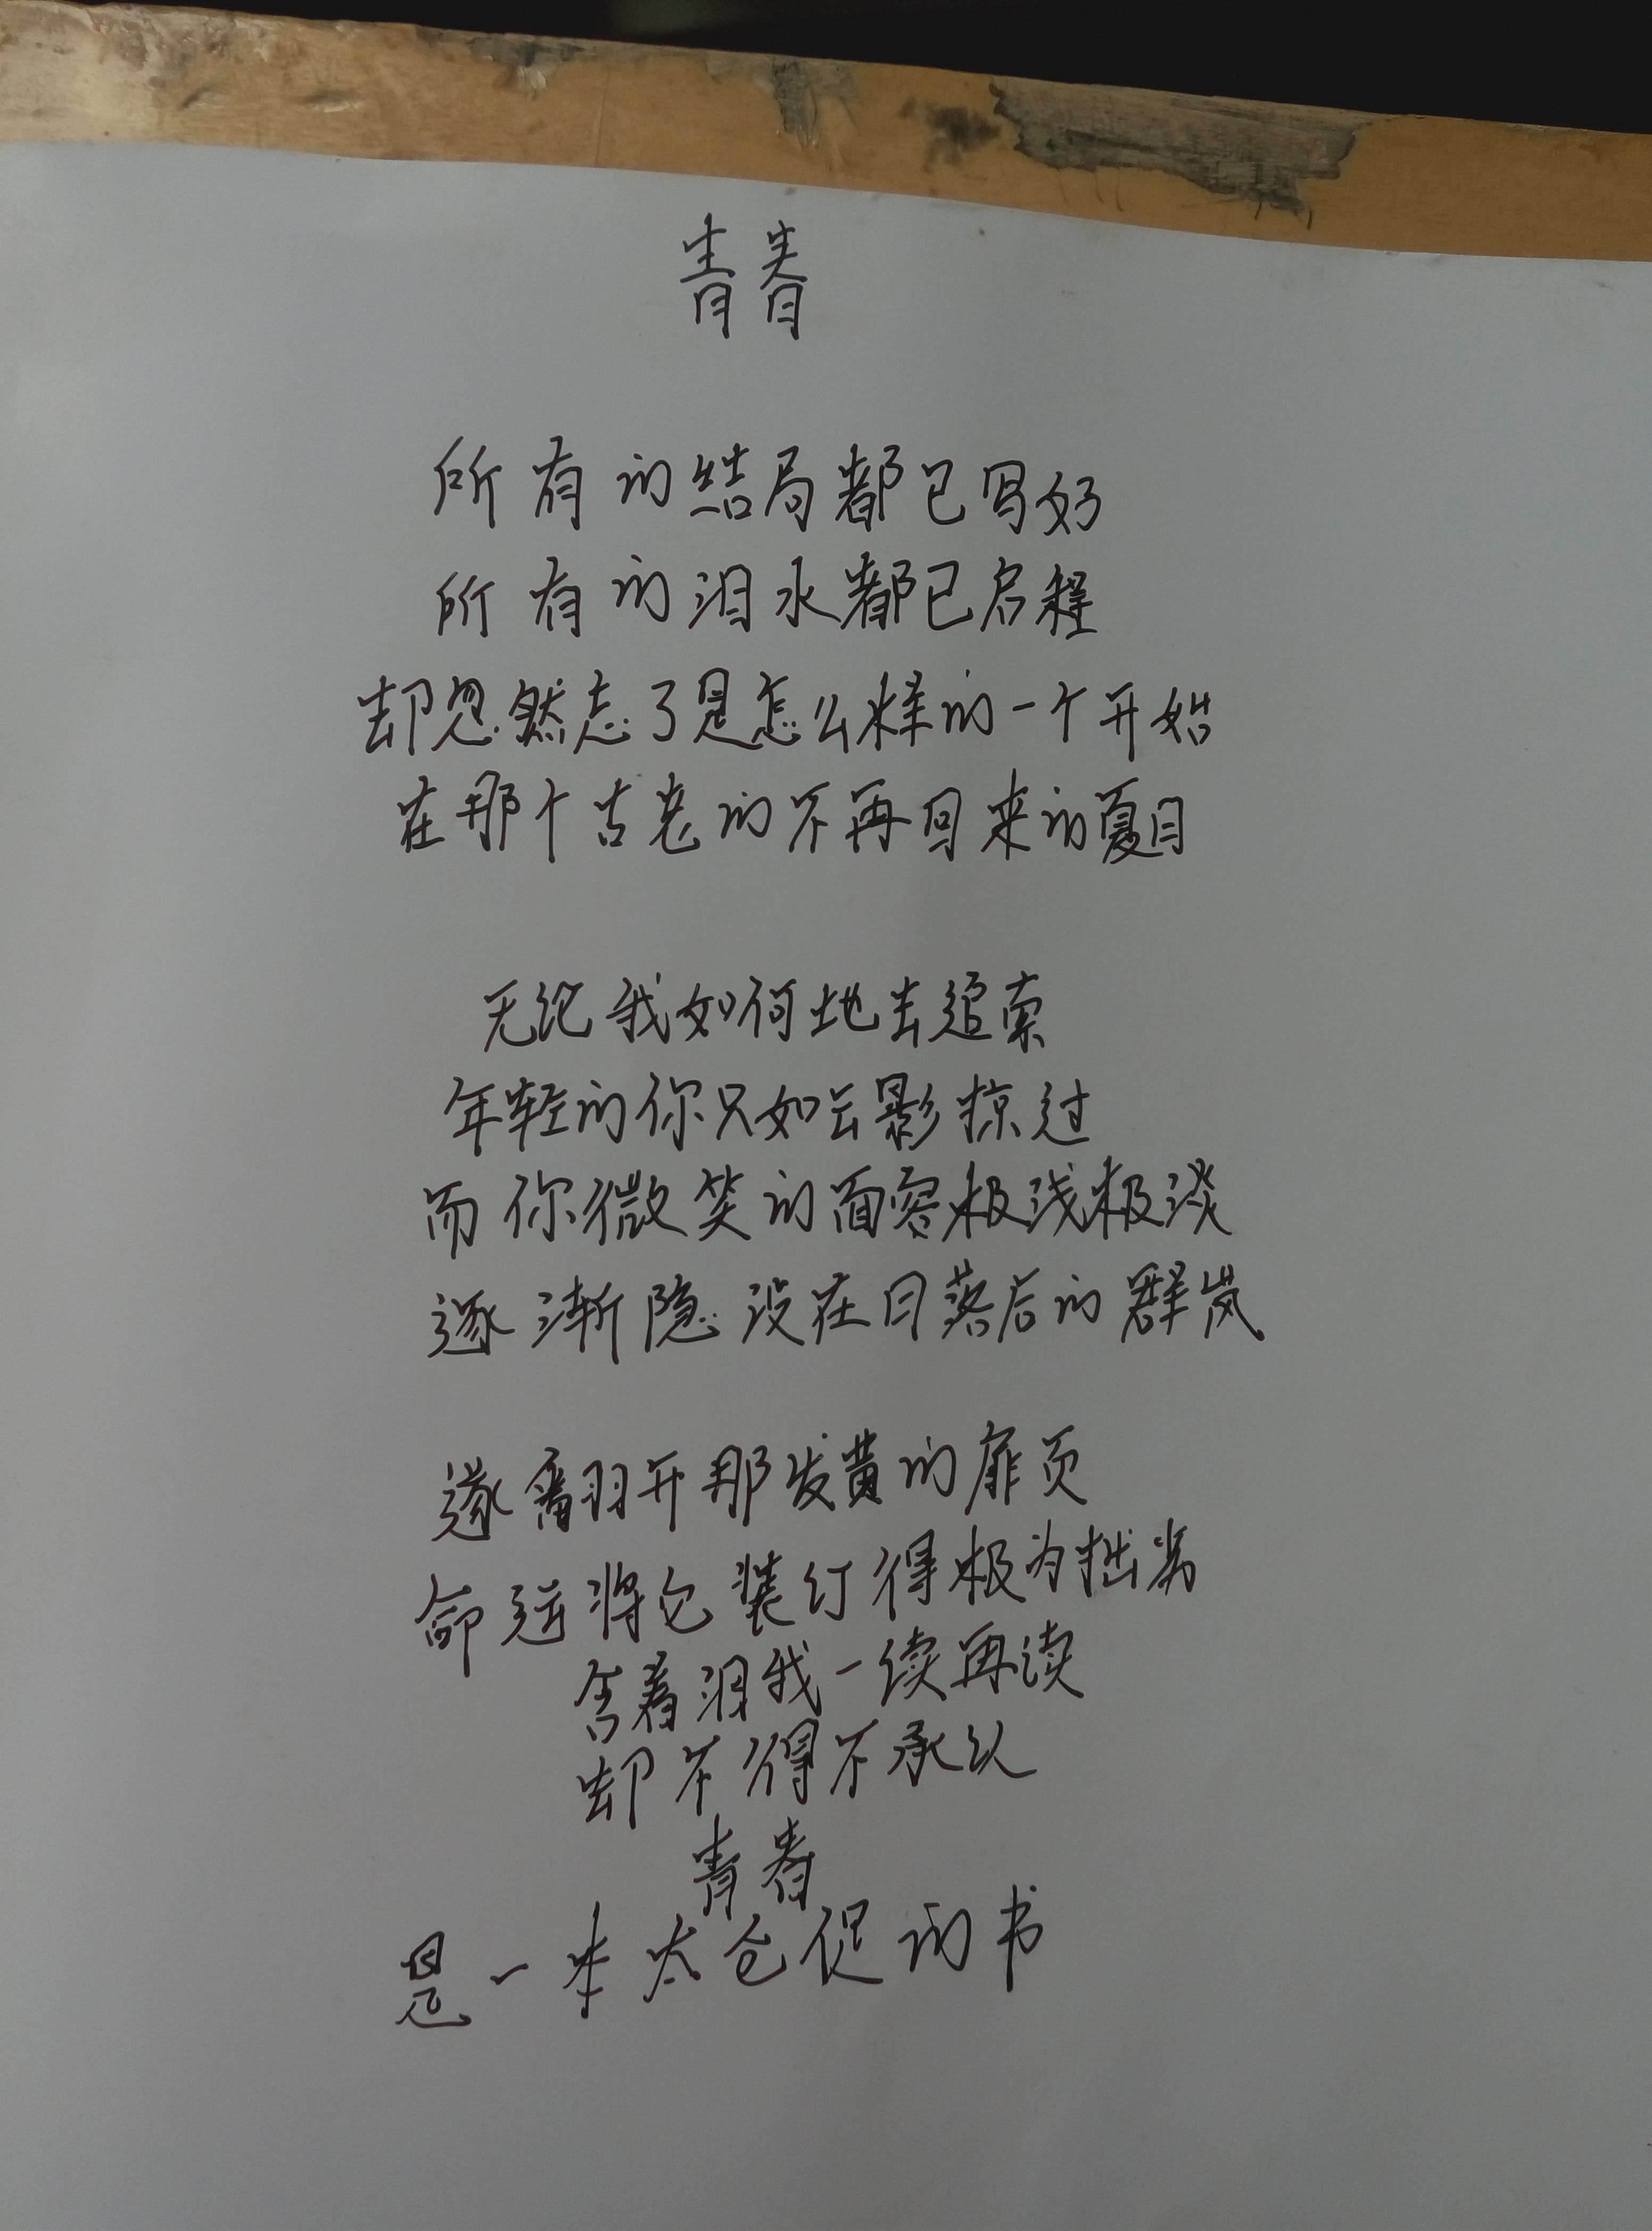 青春
所有的结局都已写好
所有的泪水都已启程
却忽然忘了是怎么样的一个开始
在那个古老的不再回来的夏日
无论我如何地去追索
年轻的你只如云影掠过
而你微笑的面容极浅极淡
逐渐隐没在日落后的群岚
遂翻开那发黄的扉页
命运将它装订得极为拙劣
含着泪我一读再读
却不得不承认
青春
是一本太仓促的书